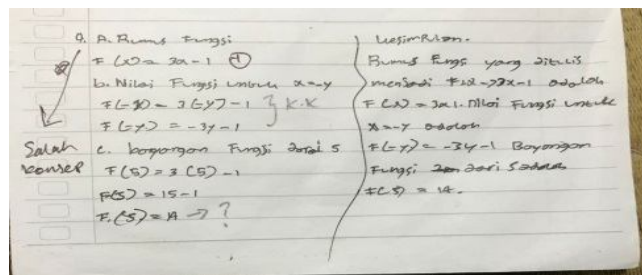 9. A. Rumus Fungsi
F (x) = 3x - 1 +
b. Nilai Fungsi untuk x = -y
F(-y) = 3(-y) - 1 } K.K
F(-y) = -3y - 1
Salah konsep
c. bayangan Fungsi dari 5
F(5) = 3 (5) - 1
F(5) = 15 - 1
F.(5) = 14 → ?
kesimpulan.
Rumus Fungsi yang ditulis
menjadi F = x → 3x - 1 adalah
F (x) = 3x1. Nilai Fungsi untuk
x = -y adalah
F(-y) = -3y - 1 Bayangan
Fungsi dari
F(5) = 14.